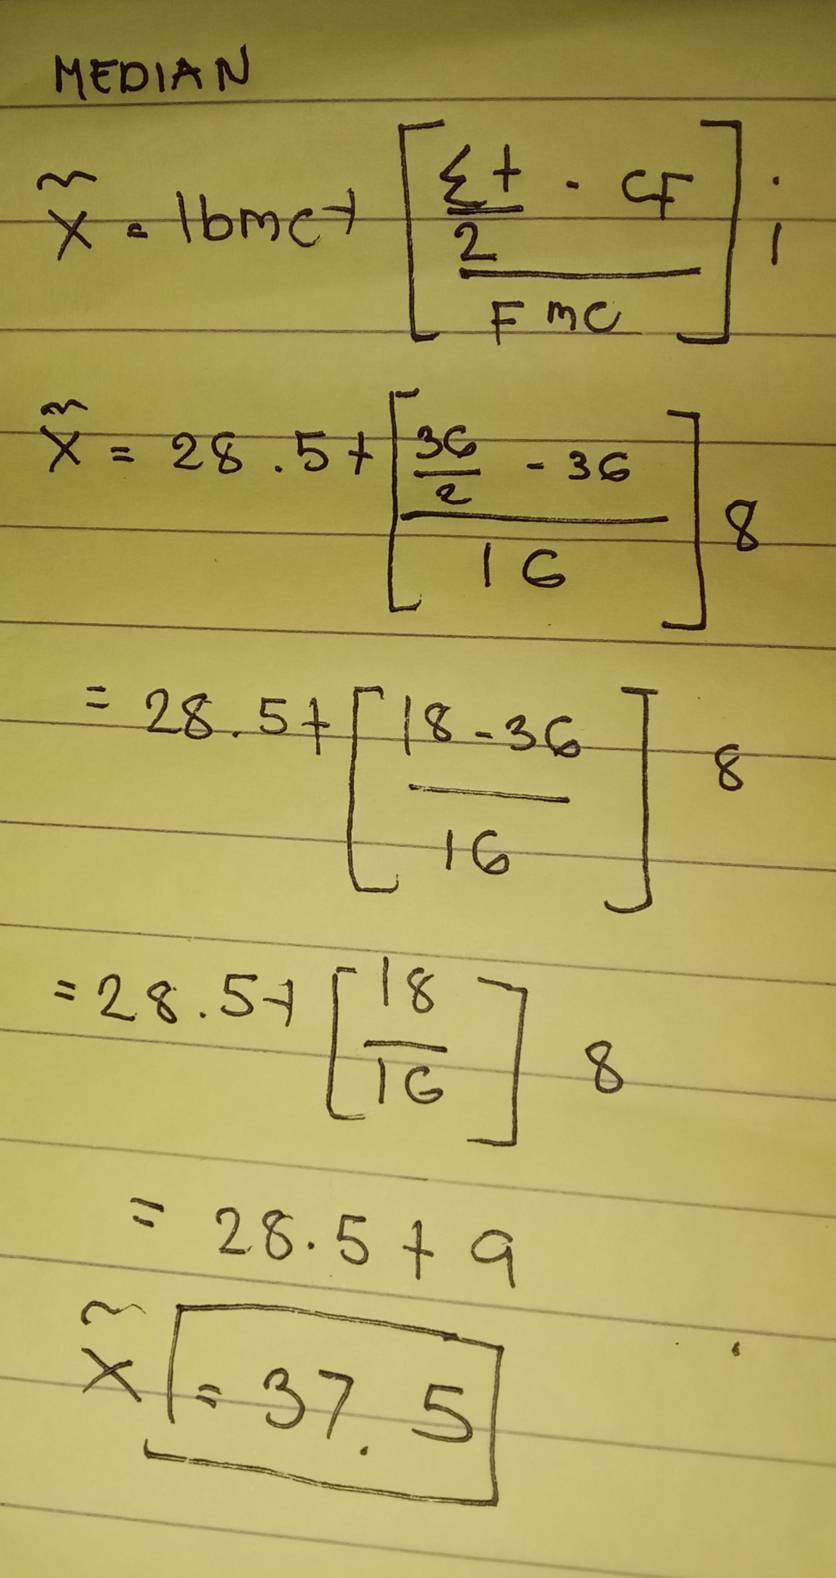 MEDIAN
x̃ = lbmc + [ (Σf/2 - CF) / Fmc ] i
x̃ = 28.5 + [ (36/2 - 36) / 16 ] 8
= 28.5 + [ (18 - 36) / 16 ] 8
= 28.5 + [ 18 / 16 ] 8
= 28.5 + 9
x̃ = 37.5